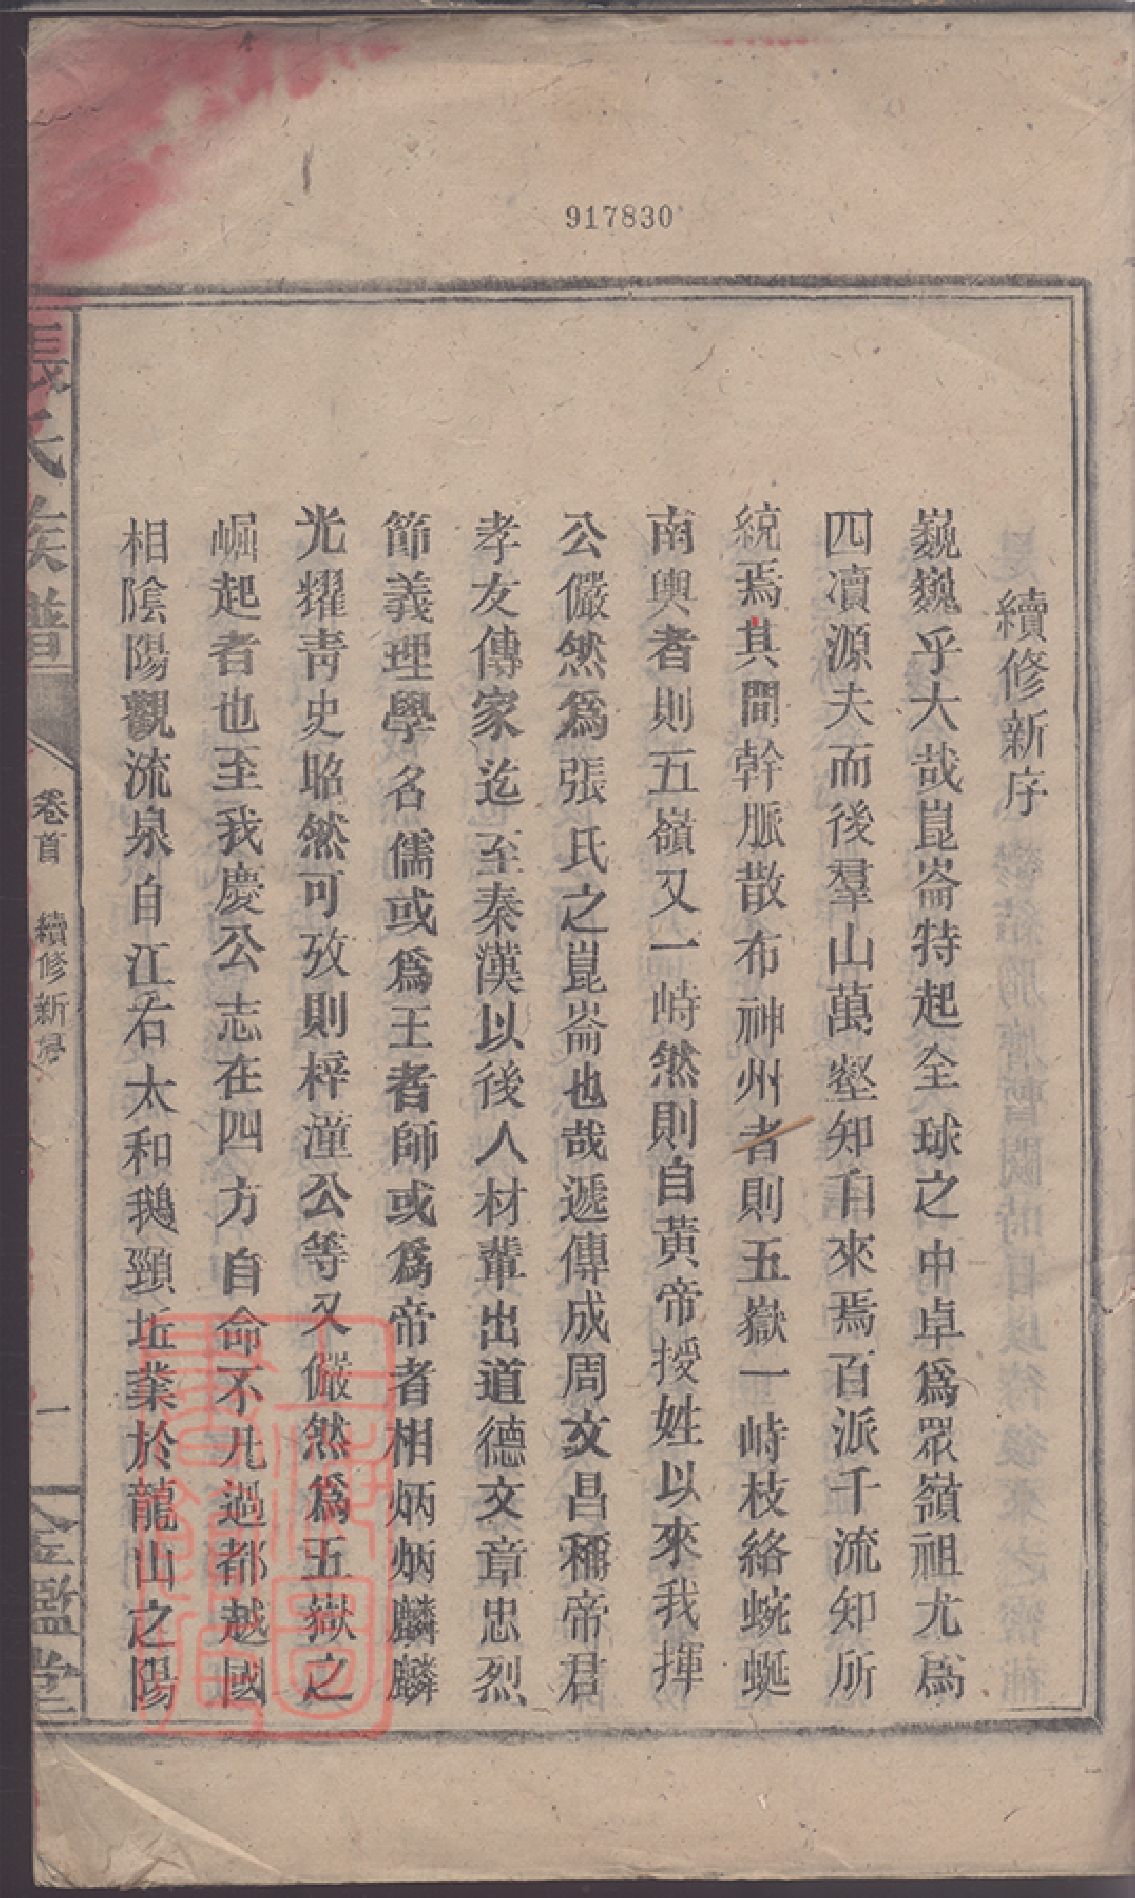 917830
續修新序
巍巍乎大哉崑崙特起全球之中卓爲眾嶺祖尤爲
四凟源夫而後羣山萬壑知自來焉百派千流知所
統焉其間幹脈散布神州者則五嶽一峙枝絡蜿蜒
南輿者則五嶺又一峙然則自黃帝授姓以來我揮
公儼然爲張氏之崑崙也哉遞傳成周文昌稱帝君
孝友傳家迄至秦漢以後人材輩出道德文章忠烈
節義理學名儒或爲王者師或爲帝者相炳炳麟麟
光耀靑史昭然可攷則梓潼公等又儼然爲五嶽之
崛起者也至我慶公志在四方自命不凡過都越國
相陰陽觀流泉自江右太和鵝頸坵葉於龍山之陽
張氏族譜
卷首
續修新序
一
金鑑堂
上海圖書館藏